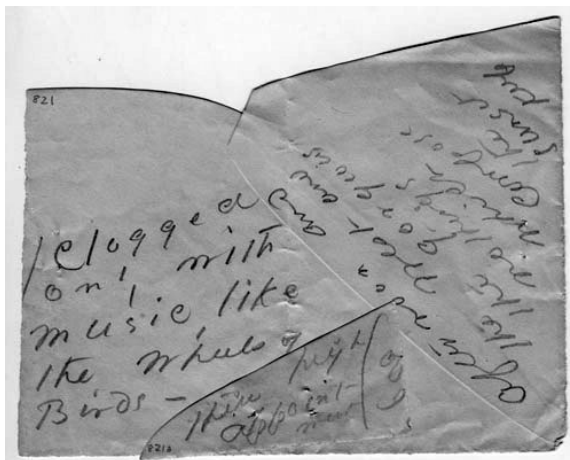 821
Clogged
only with
music, like
the wheels of
Birds -
afternoon and
the West and
the gorgeous
nothings
which
compose
the
sunset
keep
their high
appoint-
ment
821a